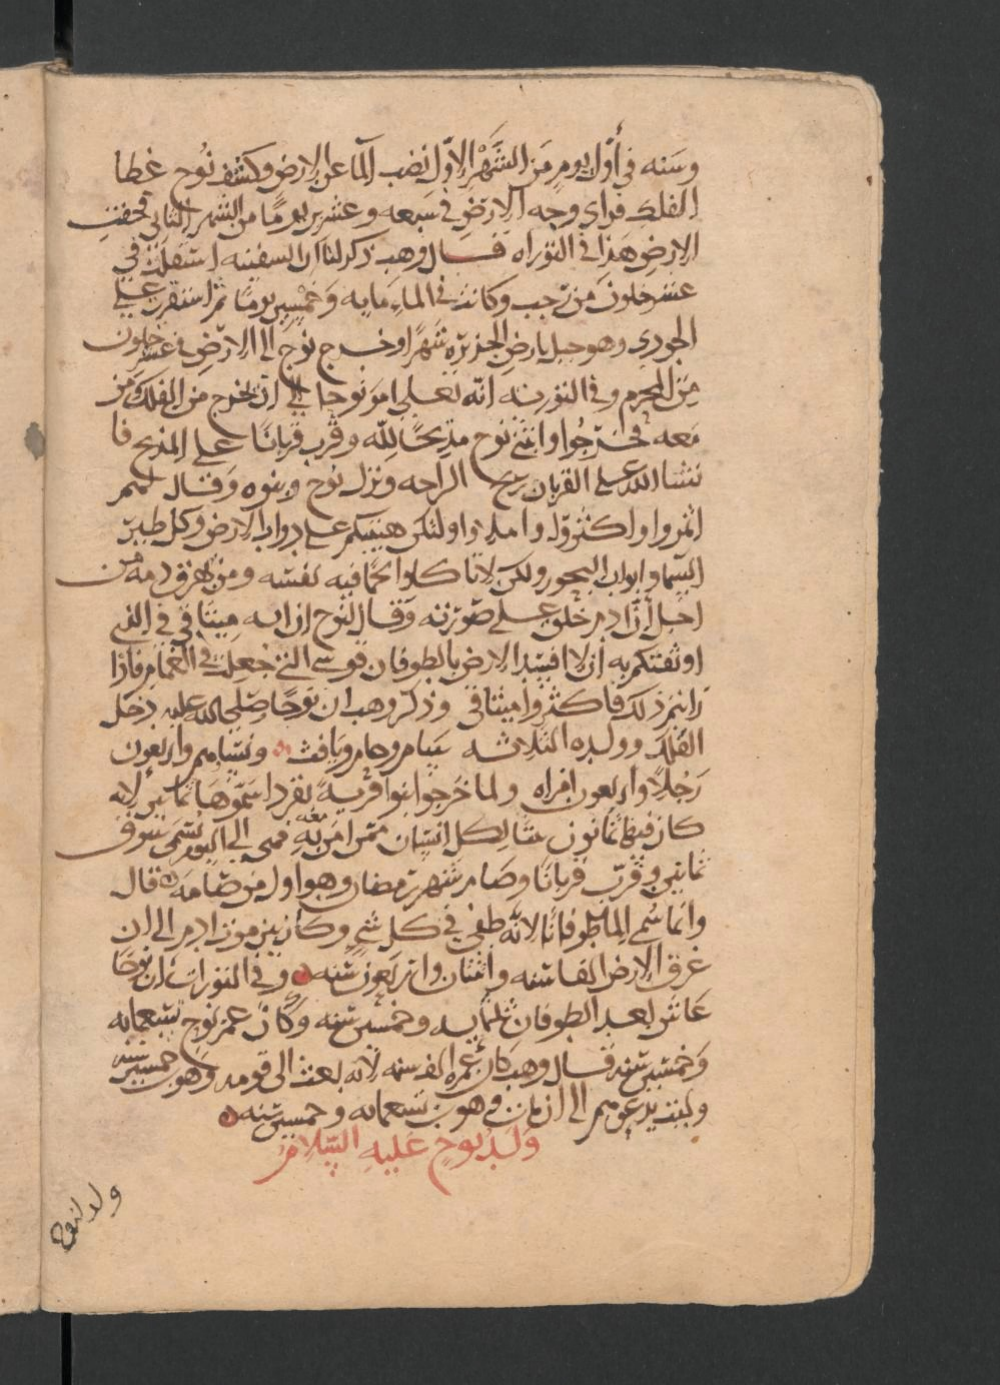 وسنه في أول يوم من الشهر الاول نضب الما عن الارض وكشف نوح غطا
الفلك فراي وجه الارض في سبعه وعشرين يوما من الشهر الثاني فجفت
الارض هذا في التوراه قال وهب ذكر لنا ان السفينه استقلت في
عشر خلون من رجب وكانت في الماء مايه وخمسين يوما ثم استقرت علي
الجودي وهو جبل بارض الجزيره شهرا وخرج نوح الي الارض في عشر خلون
من المحرم وفي التوريه انه تعلي امر نوحا ان يخرج من الفلك ومن
معه فخرجوا وابتني نوح مذبحا لله وقرب قربانا علي المذبح فا
نشا الله علي القربان ريح الراحه ونزل نوح وبنوه وقال لهم
اثمروا واكثروا واملوا ولتكن هيبتكم علي دواب الارض وكل طير
السما ودواب البحور ولكن لا تاكلوا لحما فيه نفسه ومن يهرق دمه من
اجل ان ادم خلق علي صورته وقال لنوح ان ايه ميثاقي في الذي
اوثقتكم به ان لا افسد الارض بالطوفان قوسي التي جعلت في الغمام فاذا
رايتم ذلك فاكثروا ميثاقي وذكر وهب ان نوحا صلي الله عليه دخل
الفلك وولده الثلاثه سام وحام ويافث ونساهم واربعون
رجلا واربعون امراه ولما خرجوا بنوا قريه بقردا سموها ثمانين لانه
كان فيها ثمانون بيتا لكل انسان ممن امن معه فهي الي اليوم تسمي سوق
ثمانين وقرب قربانا وصام شهر رمضان وهو اول من صامه قال
وانما سمي الما طوفانا لانه طفي في كل شي وكان بين موت ادم الي ان
غرق الارض الفا سنه واثنان واربعون سنه وفي التورات ان نوحا
عاش بعد الطوفان ثلثمايه وخمسين سنه وكان عمر نوح تسعمايه
وخمسين سنه قال وهب كان عمره الف سنه لانه بعث الي قومه وهو بن خمسين سنه
ولبث يدعوهم الي ان مات وهو بن تسعمايه وخمسين سنه
ولد نوح عليه السلام
ولد نوح